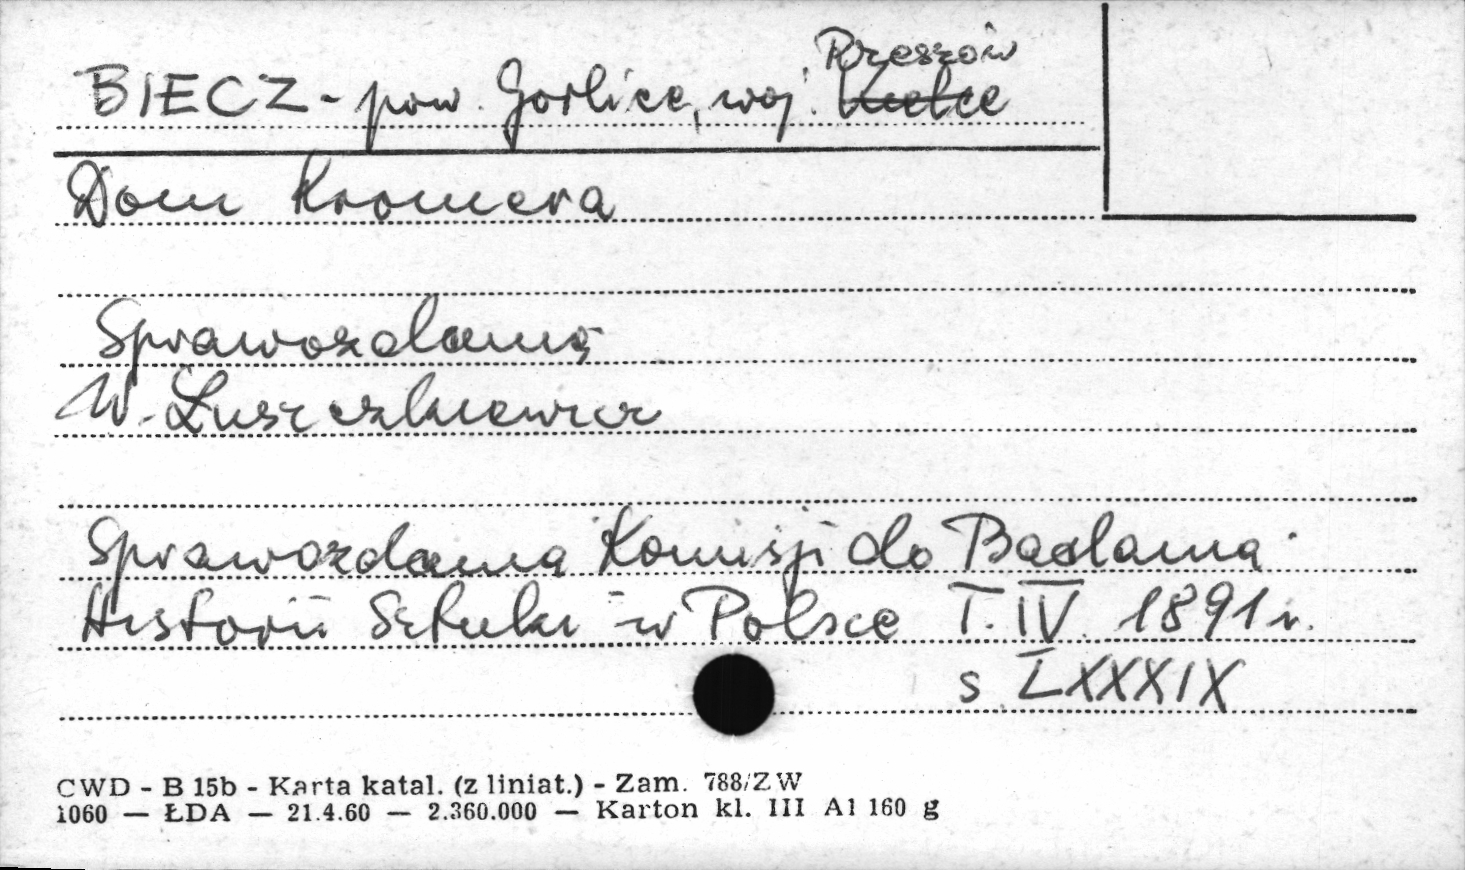 BIECZ - pow. Gorlice, woj. Kielce Rzeszów
Dom Kromera
Sprawozdania
W. Łuszczkiewicz
Sprawozdania Komisji do Badania
Historii Sztuki w Polsce T. IV. 1891 r.
s. LXXXIX
CWD - B 15b - Karta katal. (z liniat.) - Zam. 788/ZW
1060 — ŁDA — 21.4.60 — 2.360.000 — Karton kl. III A1 160 g